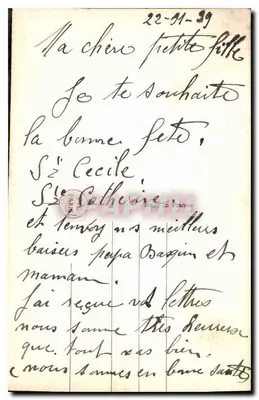 22-11-39
Ma chère petite fille
Je te souhaite
la bonne fete.
Ste Cecile
Ste Catherine...
et tenvoy nos meilleurs
baisers papa et
maman.
Jai reçue vos lettres
nous somme très heureuse
que tout vas bien.
nous sommes en bone santé